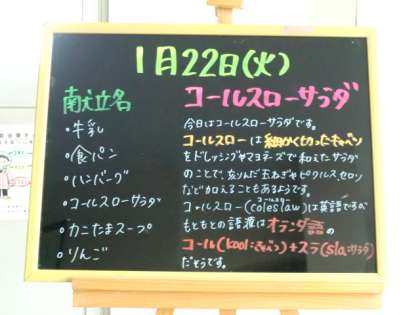 1月22日(火)
献立名
・牛乳
・食パン
・ハンバーグ
・コールスローサラダ
・カニたまスープ
・りんご
コールスローサラダ
今日はコールスローサラダです。
コールスローは細かく切ったキャベツ
をドレッシングやマヨネーズで和えたサラダ
のことで、みじん玉ねぎやピクルス、セロリ
なども加えることもあるようです。
コールスロー
コールスロー(coleslaw)は英語ですが
もともとの語源はオランダ語の
コール(kool:キャベツ)+スラ(sla:サラダ)
だそうです。